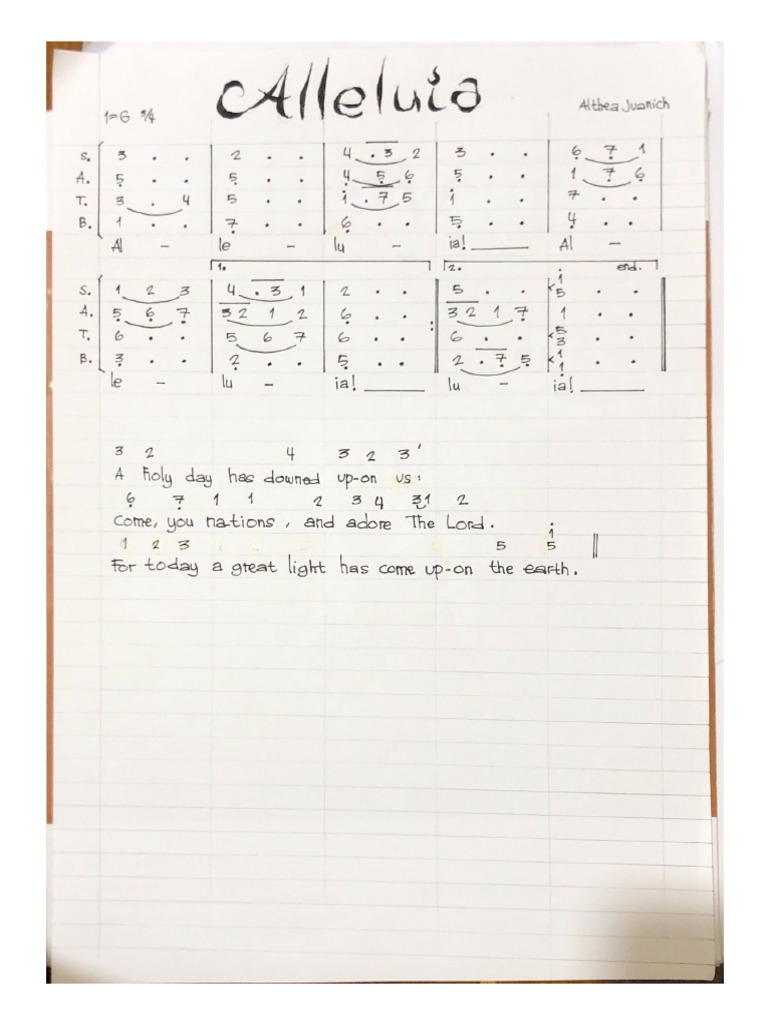 Alleluia
1=G 3/4
Althea Juanich
S. 3 . . | 2 . . | 4 . 3 2 | 3 . . | 6̣ 7̣ 1
A. 5̣ . . | 5̣ . . | 4̣ 5̣ 6̣ | 5̣ . . | 1 7̣ 6̣
T. 3 . 4 | 5 . . | i . 7 5 | i . . | 7 . .
B. 1 . . | 7̣ . . | 6̣ . . | 5̣ . . | 4̣ . .
Al - le - lu - ia! ______ Al -
1. 2. end.
S. 1 2 3 | 4 . 3 1 | 2 . . | 5 . . | i 5 . .
A. 5̣ 6̣ 7̣ | 3 2 1 2 | 6̣ . . : | 3 2 1 7̣ | 1 . .
T. 6 . . | 5 6 7 | 6 . . | 6 . . | 5 3 . .
B. 3̣ . . | 2̣ . . | 5̣ . . | 2 . 7̣ 5̣ | 1 1̣ . .
le - lu - ia! ______ lu - ia! ______
3 2 4 3 2 3 '
A holy day has downed up-on us:
6̣ 7̣ 1 1 2 3 4 31 2
Come, you na-tions, and adore The Lord.
1 2 3 5 i 5
For today a great light has come up-on the earth.